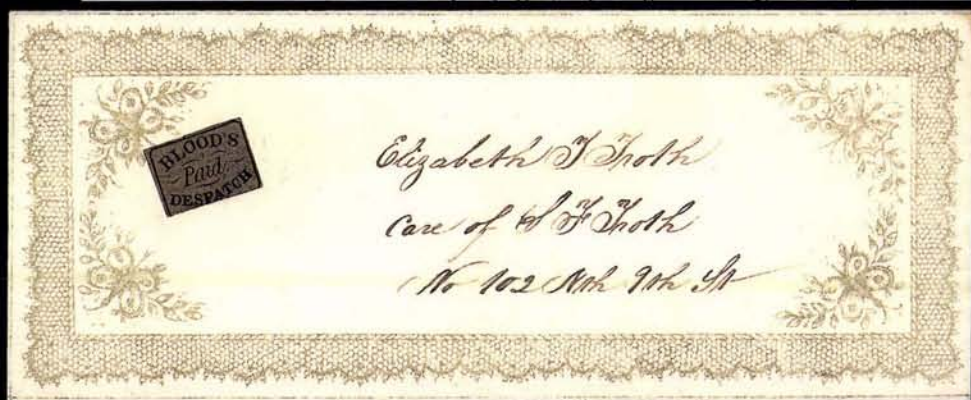 BLOOD'S
Paid
DESPATCH
Elizabeth T Troth
Care of S F Troth
No 102 Nth 9th St